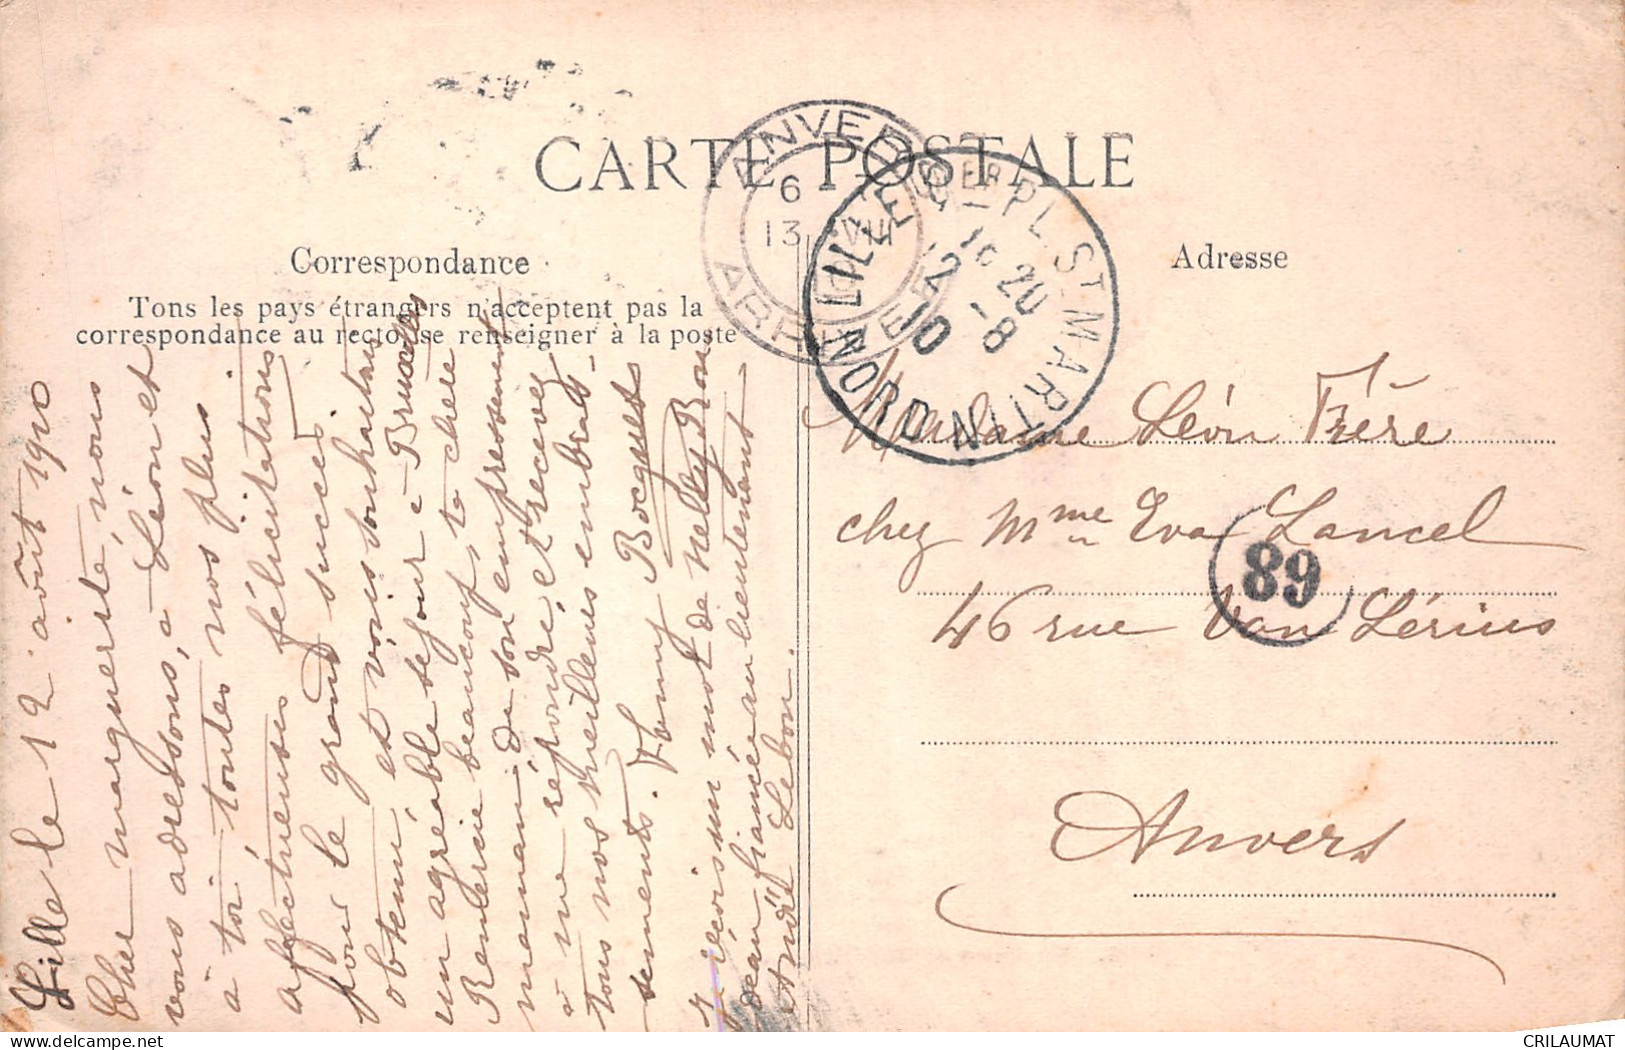 CARTE POSTALE
Correspondance
Tous les pays étrangers n'acceptent pas la
correspondance au recto (se renseigner à la poste
Adresse
ANVERS
6
13 VIII
ARRIVÉE
LILLE PL. ST MARTIN
NORD
16 20
12 - 8
10
Madame Léon Frère
chez Mme Eva Lancel
89
46 rue Van Lérius
Anvers
Lille le 12 août 1910
Cher marguerite, nous
vous adressons, a Léon et
à toi toutes nos plus
affectueuses félicitations
pour le grand succès
obtenu, et vous souhaitant
un agréable séjour a Bruxelles
Remercie beaucoup, ta chère
maman, de son empressement
à me répondre, et recevez
tous nos meilleurs embras-
sements. Fanny Bocquet
Je reçois un mot de Nelly Bon
beau fiancé au lieutenant
André Lebon.
CRILAUMAT